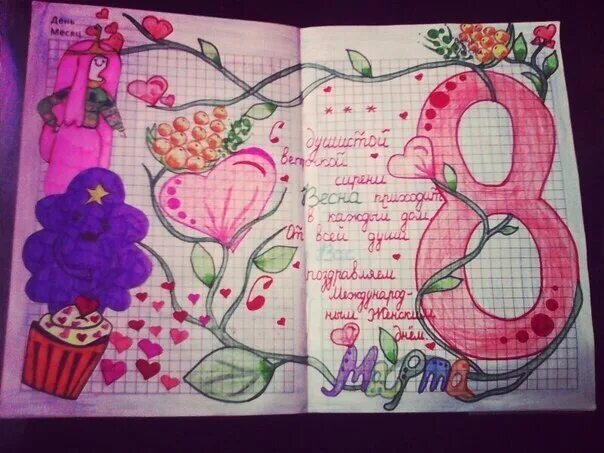 День
Месяц
* * *
С душистой
веточкой
сирени
Весна приходит
в каждый дом,
От всей души
Вас
поздравляем
С Международ-
ным Женским
днём.
8
Марта